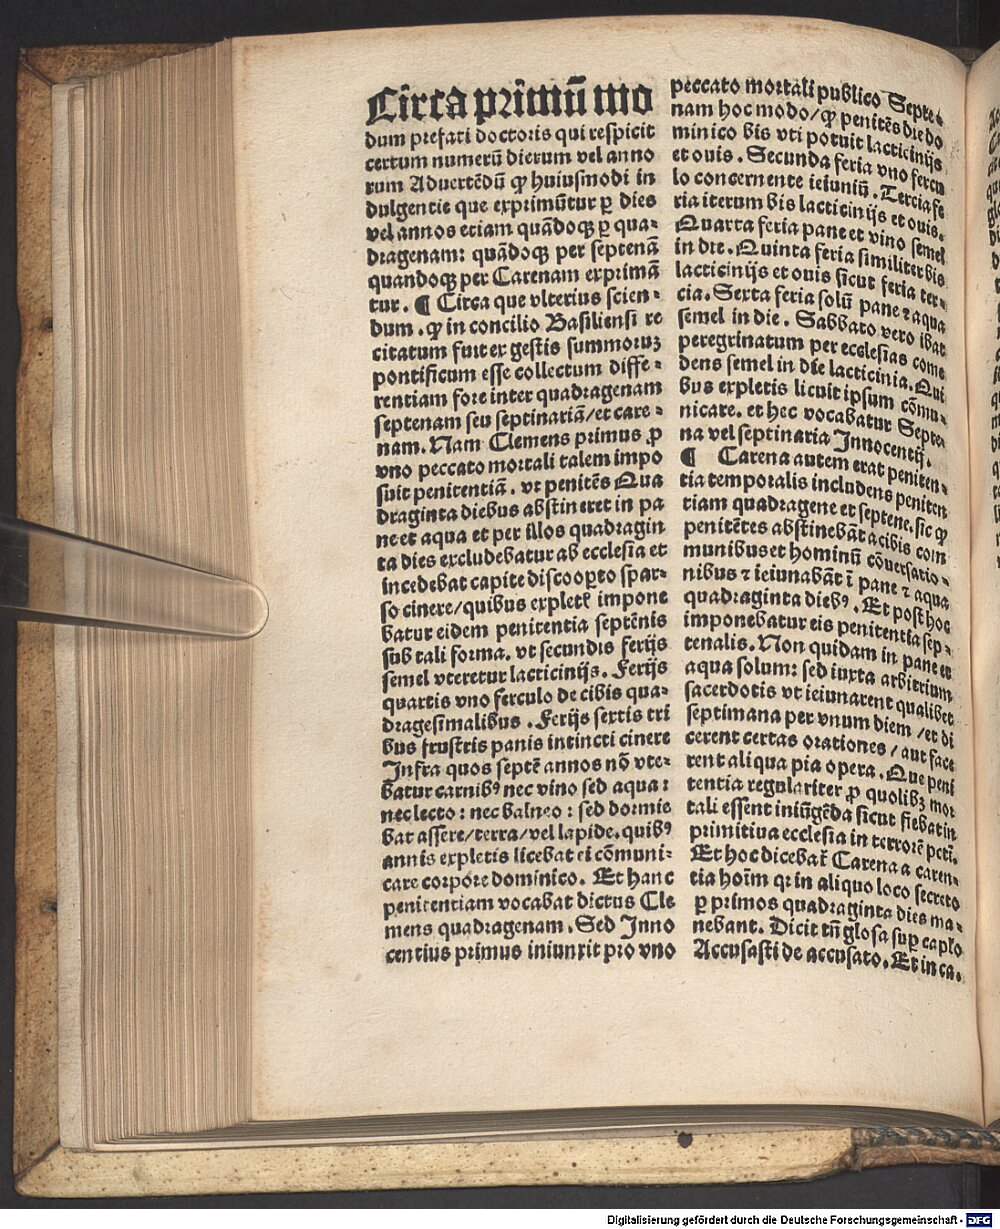 Circa primū mo
dum prefati doctoris qui respicit
certum numerū dierum vel anno
rum Aduertēdū ꝙ huiusmodi in
dulgentie que exprimūtur ꝑ dies
vel annos etiam quādoqꝫ ꝑ qua-
dragenam: quādoqꝫ per septenā
quandoqꝫ per Carenam exprimā
tur . ¶ Circa que vlterius scien-
dum . ꝙ in concilio Basiliensi re
citatum fuit ex gestis summoruꝫ
pontificum esse collectum diffe-
rentiam fore inter quadragenam
septenam seu septinariā/et care-
nam. Nam Clemens primus ꝓ
vno peccato mortali talem impo
suit penitentiā . vt penitēs Qua
draginta diebus abstineret in pa
ne et aqua et per illos quadragin
ta dies excludebatur ab ecclesia et
incedebat capite discooꝑto spar-
so cinere/quibus explet̄ impone
batur eidem penitentia septēnis
sub tali forma. vt secundis ferijs
semel vteretur lacticinijs. Ferijs
quartis vno ferculo de cibis qua-
dragesimalibus . Ferijs sextis tri
bus frustris panis intincti cinere
Infra quos septē annos nō vte-
batur carnibꝰ nec vino sed aqua:
nec lecto: nec balneo: sed dormie
bat assere/terra/vel lapide. quibꝰ
annis expletis licebat ei cōmuni-
care corpore dominico. Et hanc
penitentiam vocabat dictus Cle
mens quadragenam. Sed Inno
centius primus iniunxit pro vno
peccato mortali publico Septe-
nam hoc modo/ꝙ penitēs die do
minico bis vti potuit lacticinijs
et ouis . Secunda feria vno fercu
lo concernente ieiuniū . Tercia fe
ria iterum bis lacticinijs et ouis.
Quarta feria pane et vino semel
in die . Quinta feria similiter bis
lacticinijs et ouis sicut feria ter-
cia. Sexta feria solū pane ⁊ aqua
semel in die . Sabbato vero ibat
peregrinatum per ecclesias come
dens semel in die lacticinia. Qui
bus expletis licuit ipsum cōmu-
nicare. et hec vocabatur Septe-
na vel septinaria Innocentij.
¶ Carena autem erat peniten-
tia temporalis includens peniten
tiam quadragene et septene. sic ꝙ
penitētes abstinebāt a cibis com
munibus et hominū cōuersatio-
nibus ⁊ ieiunabāt ī pane ⁊ aqua
quadraginta diebꝰ . Et post hoc
imponebatur eis penitentia sep-
tenalis. Non quidam in pane et
aqua solum: sed iuxta arbitrium
sacerdotis vt ieiunarent qualibet
septimana per vnum diem/et di
cerent certas orationes/aut face
rent aliqua pia opera . Que peni
tentia regulariter ꝓ quolibꝫ mor
tali essent iniūgēda sicut fiebat in
primitiua ecclesia in terrorē pctī.
Et hoc dicebat̄ Carena a caren-
tia hoīm qr in aliquo loco secreto
ꝑ primos quadraginta dies ma-
nebant. Dicit tn̄ glosa suꝑ caplo
Accusasti de accusato. Et in ca.
Digitalisierung gefördert durch die Deutsche Forschungsgemeinschaft - DFG